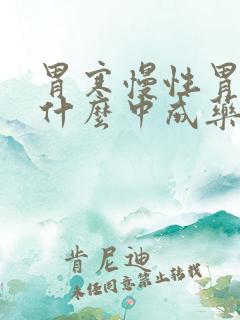 胃寒慢性胃
什麼中成藥
肯尼迪
未经同意禁止转载